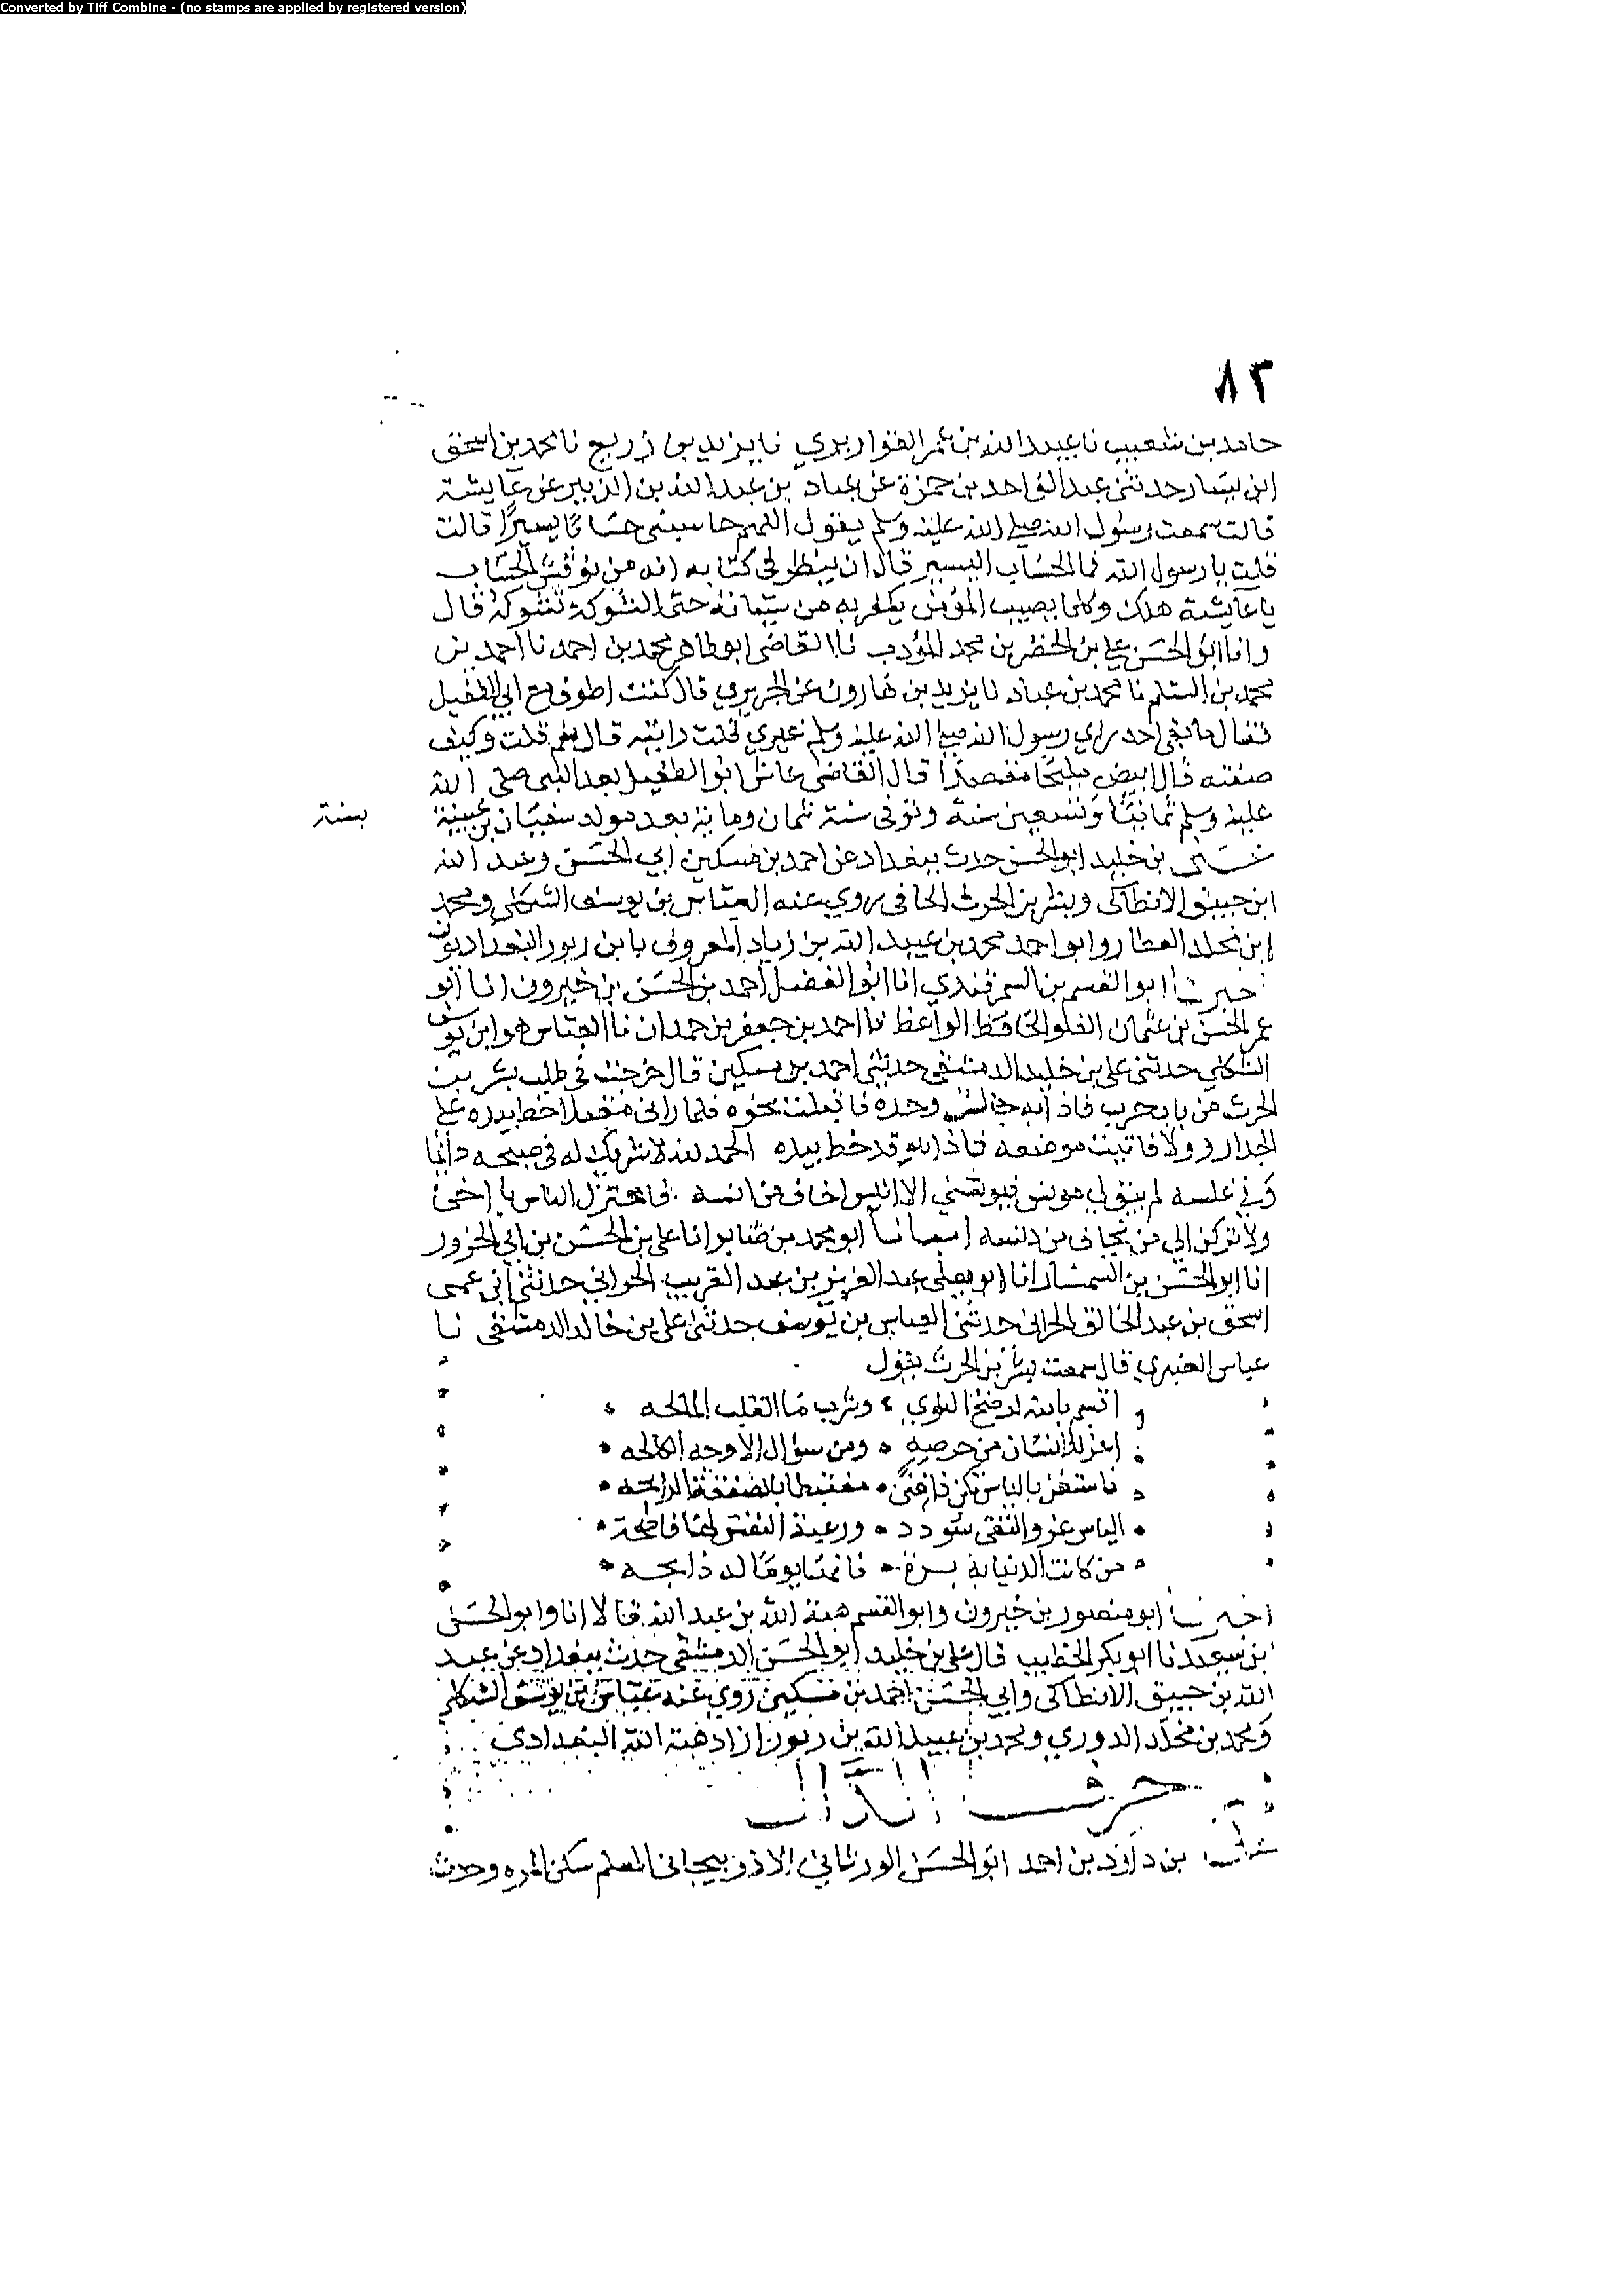 Converted by Tiff Combine - (no stamps are applied by registered version)
٨٣
حامد بن شعيب نا عبيد الله بن عمر القواريري نا يزيد بن زريع نا محمد بن اسحق
ابن يسار حدثني عبد الواحد بن حمزة عن عباد بن عبد الله بن الزبير عن عايشة
قالت سمعت رسول الله صلى الله عليه وسلم يقول اللهم حاسبني حسابا يسيرا قالت
قلت يا رسول الله فما الحساب اليسير قال ان ينظر في كتابه انه من نوقش الحساب
يا عايشة هلك وكلما يصيب المؤمن يكفر به من سيئاته حتى الشوكة تشوكه قال
وانا ابو الحسن علي بن الخضر بن محمد المؤدب نا القاضي ابو طاهر محمد بن احمد نا احمد بن
محمد بن السلم نا محمد بن عباد نا يزيد بن هارون عن الجريري قال كنت اطوف مع ابي الطفيل
فقال ما بقي احد راي رسول الله صلى الله عليه وسلم غيري قلت رايته قال نعم قلت وكيف
صفته قال ابيض مليحا مقصدا قال القاضي عاش ابو الطفيل بعد النبي صلى الله
عليه وسلم ثمانيا وتسعين سنة وتوفى سنة ثمان وماية بعد مولد سفيان بن عيينة
بسنة
علي بن خليد ابو الحسن حدث ببغداد عن احمد بن مسكين ابي الحسن وعبد الله
ابن خبيق الانطاكي وبشر بن الحرث الحافي روي عنه العباس بن يوسف الشكلي ومحمد
ابن مخلد العطار وابو احمد محمد بن عبيد الله بن زياد المعروف بابن زبور البغداديون
اخبرنا ابو القسم بن السمرقندي انا ابو الفضل احمد بن الحسن بن خيرون انا ابو
عمر الحسن بن عثمان الفلو الحافظ الواعظ نا احمد بن جعفر بن حمدان نا العباس هو ابن يوسف
الشكلي حدثني علي بن خليد الدمشقي حدثني احمد بن مسكين قال خرجت في طلب بشر بن
الحرث من باب حرب فاذا به جالس وحده فاقبلت نحوه فلما راني مقبلا خط بيده على
الجدار وولا فاتيت موضعه فاذا هو قد خط بيده الحمد لله لا شريك له في صبحه دائما
وفي غلسه لم يبق لي مونس فيونسني الا انيس اخاف من انسه فاعتزل الناس يا اخي
ولا تركن الي من تخاف من دنسه انبانا ابو محمد بن صابر انا علي بن الحسن بن ابي الحزور
انا ابو الحسن بن السمسار انا ابو يعلى عبد العزيز بن عبد القريب الحراني حدثني ابن عمي
اسحق بن عبد الخالق الحراني حدثني العباس بن يوسف حدثني علي بن خالد الدمشقي نا
عباس العنبري قال سمعت بشر بن الحرث يقول
اقسم بالله لرضخ النوي وشرب ما القلب المالحه
اعز للانسان من حرصه ومن سؤال الاوجه الكالحه
فاستغن بالياس تكن ذا غنى مغتبطا بالصفقة الرابحه
الياس عز والتقى سودد ورغبة النفس لها فاضحة
من كانت الدنيا به برة فانها يوما له ذابحه
اخبرنا ابو منصور بن خيرون وابو القسم هبة الله بن عبد الله قالا انا وابو الحسن
بن سعيد نا ابو بكر الخطيب قال علي بن خليد ابو الحسن الدمشقي حدث ببغداد عن عبد
الله بن خبيق الانطاكي وابي الحسن احمد بن مسكين روي عنه عباس بن يوسف الشكلي
ومحمد بن مخلد الدوري ومحمد بن عبيد الله بن زبور زاد هبة الله البغدادي
حرف الدال
علي بن داود بن احمد ابو الحسن الورثاني الاذربيجاني المعلم سكن المزه وحدث